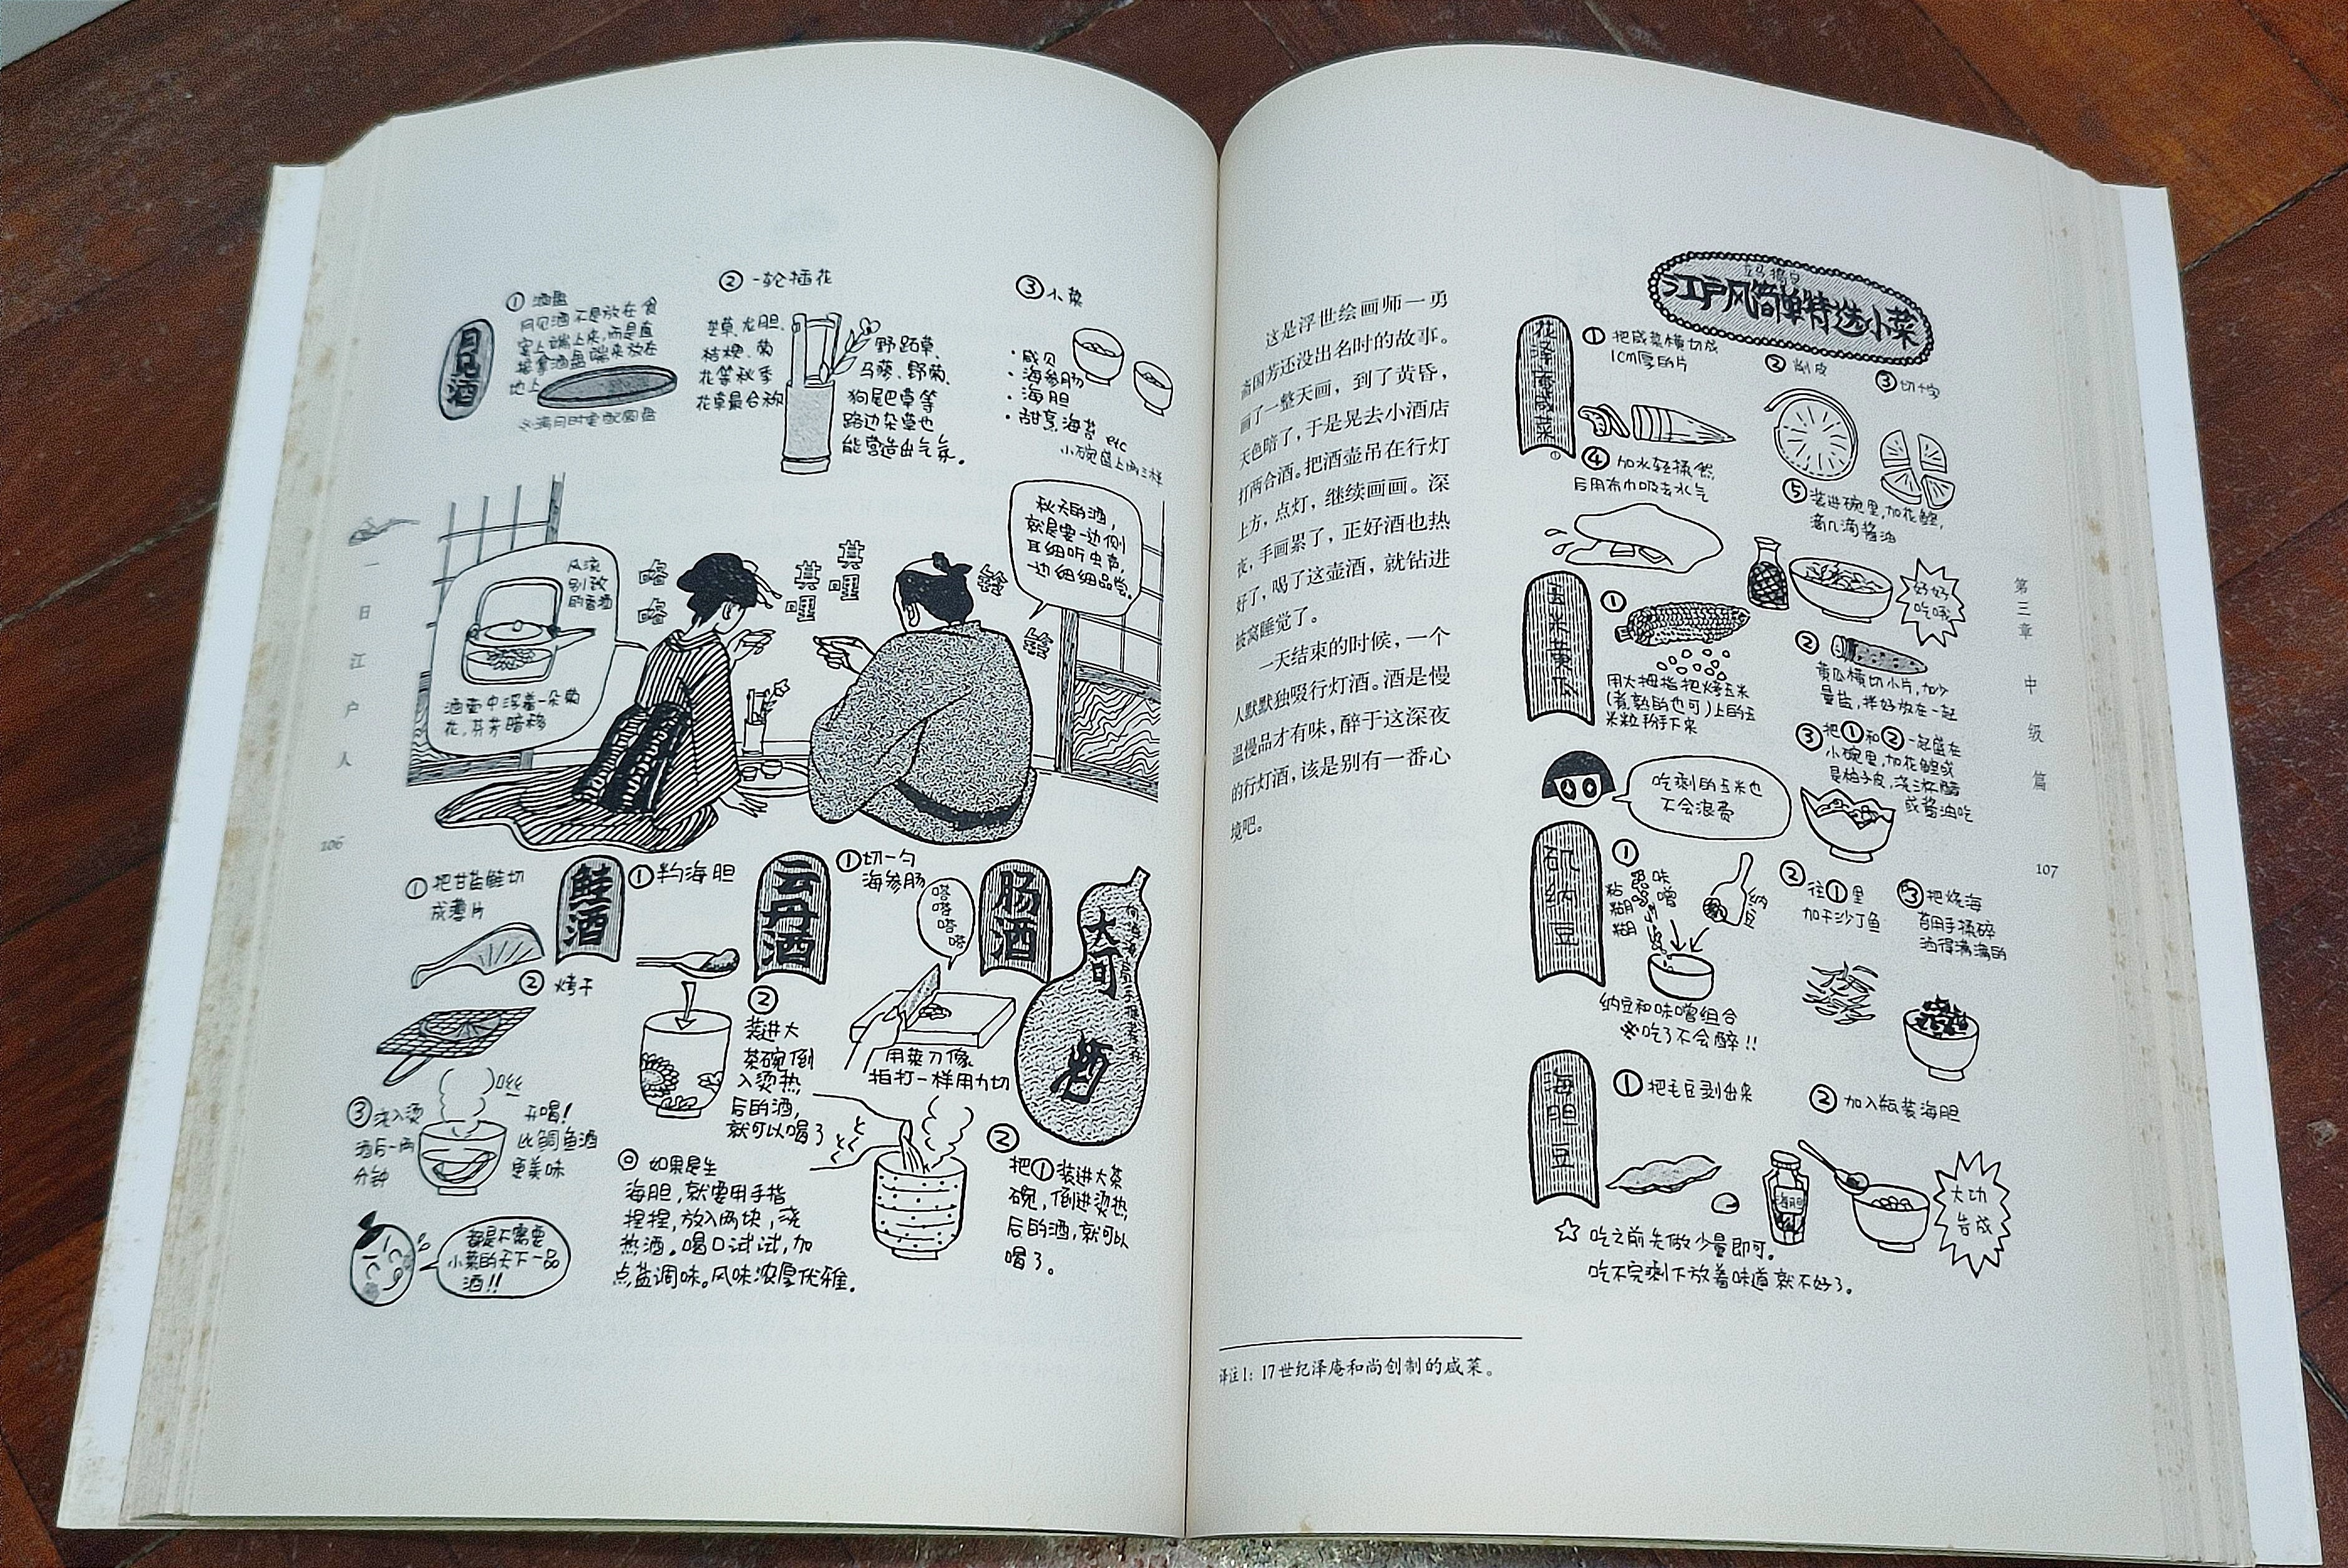 月见酒
① 酒盘
月见酒不是放在食
案上端上来,而是直
接拿酒盘端来放在
地上
※满月时要配圆盘
② 一轮插花
龙胆、
桔梗、菊
花等秋季
花草最合称
野路草、
马蓼、野菊、
狗尾巴草等
路边杂草也
能营造出气氛。
③ 小菜
·咸贝
·海参肠
·海胆
·甜烹海苔 etc
小碗盛上两三样
风流
别致
的香酒
酒壶中浮着一朵菊
花,芬芳暗移
咯
咯
其
哩
其
哩
铃
铃
秋天的酒,
就是要一边侧
耳细听虫声,
一边细细品尝。
一日江户人
106
鲑酒
① 把甘盐鲑切
成薄片
② 烤干
③ 浇入烫
酒后一两
分钟
开喝!
比鲷鱼酒
更美味
都是不需要
小菜的天下一品
酒!!
云丹酒
① 一勺海胆
②
装进大
茶碗倒
入烫热
后的酒,
就可以喝了
◎ 如果是生
海胆,就要用手指
捏捏,放入两块,浇
热酒。喝口试试,加
点盐调味。风味浓厚优雅。
肠酒
① 切一勺
海参肠
嗒
嗒
嗒
嗒
用菜刀像
拍打一样用力切
②
把①装进大茶
碗,倒进烫热
后的酒,就可以
喝了。
这是浮世绘画师一勇
斋国芳还没出名时的故事。
画了一整天画,到了黄昏,
天色暗了,于是晃去小酒店
打两合酒。把酒壶吊在行灯
上方,点灯,继续画画。深
夜,手画累了,正好酒也热
好了,喝了这壶酒,就钻进
被窝睡觉了。
一天结束的时候,一个
人默默独吸行灯酒。酒是慢
温慢品才有味,醉于这深夜
的行灯酒,该是别有一番心
境吧。
江户风简单特选小菜
花泽庵咸菜①
① 把咸菜横切成
1cm厚的片
② 削皮
③ 切
④ 加水轻揉然
后用布巾吸去水气
⑤ 装进碗里,加花鲣,
滴几滴酱油
好好
吃哦
玉米黄瓜
①
用大拇指把烤玉米
(煮熟的也可)上的玉
米粒掰下来
②
黄瓜横切小片,加少
量盐,拌好放在一起
③ 把①和②一起盛在
小碗里,加花鲣或
是柚子皮,浇
或酱油吃
吃剩的玉米也
不会浪费
矶纳豆
①
味噌
粘
糊
糊
纳豆
纳豆和味噌组合
※吃了不会醉!!
② 往①里
加干沙丁鱼
③ 把烧海
苔用手揉碎
洒得满满的
海胆豆
① 把毛豆剥出来
② 加入瓶装海胆
海胆
大功
告成
☆ 吃之前先做少量即可。
吃不完剩下放着味道就不好了。
第三章 中级篇
107
译注1: 17世纪泽庵和尚创制的咸菜。